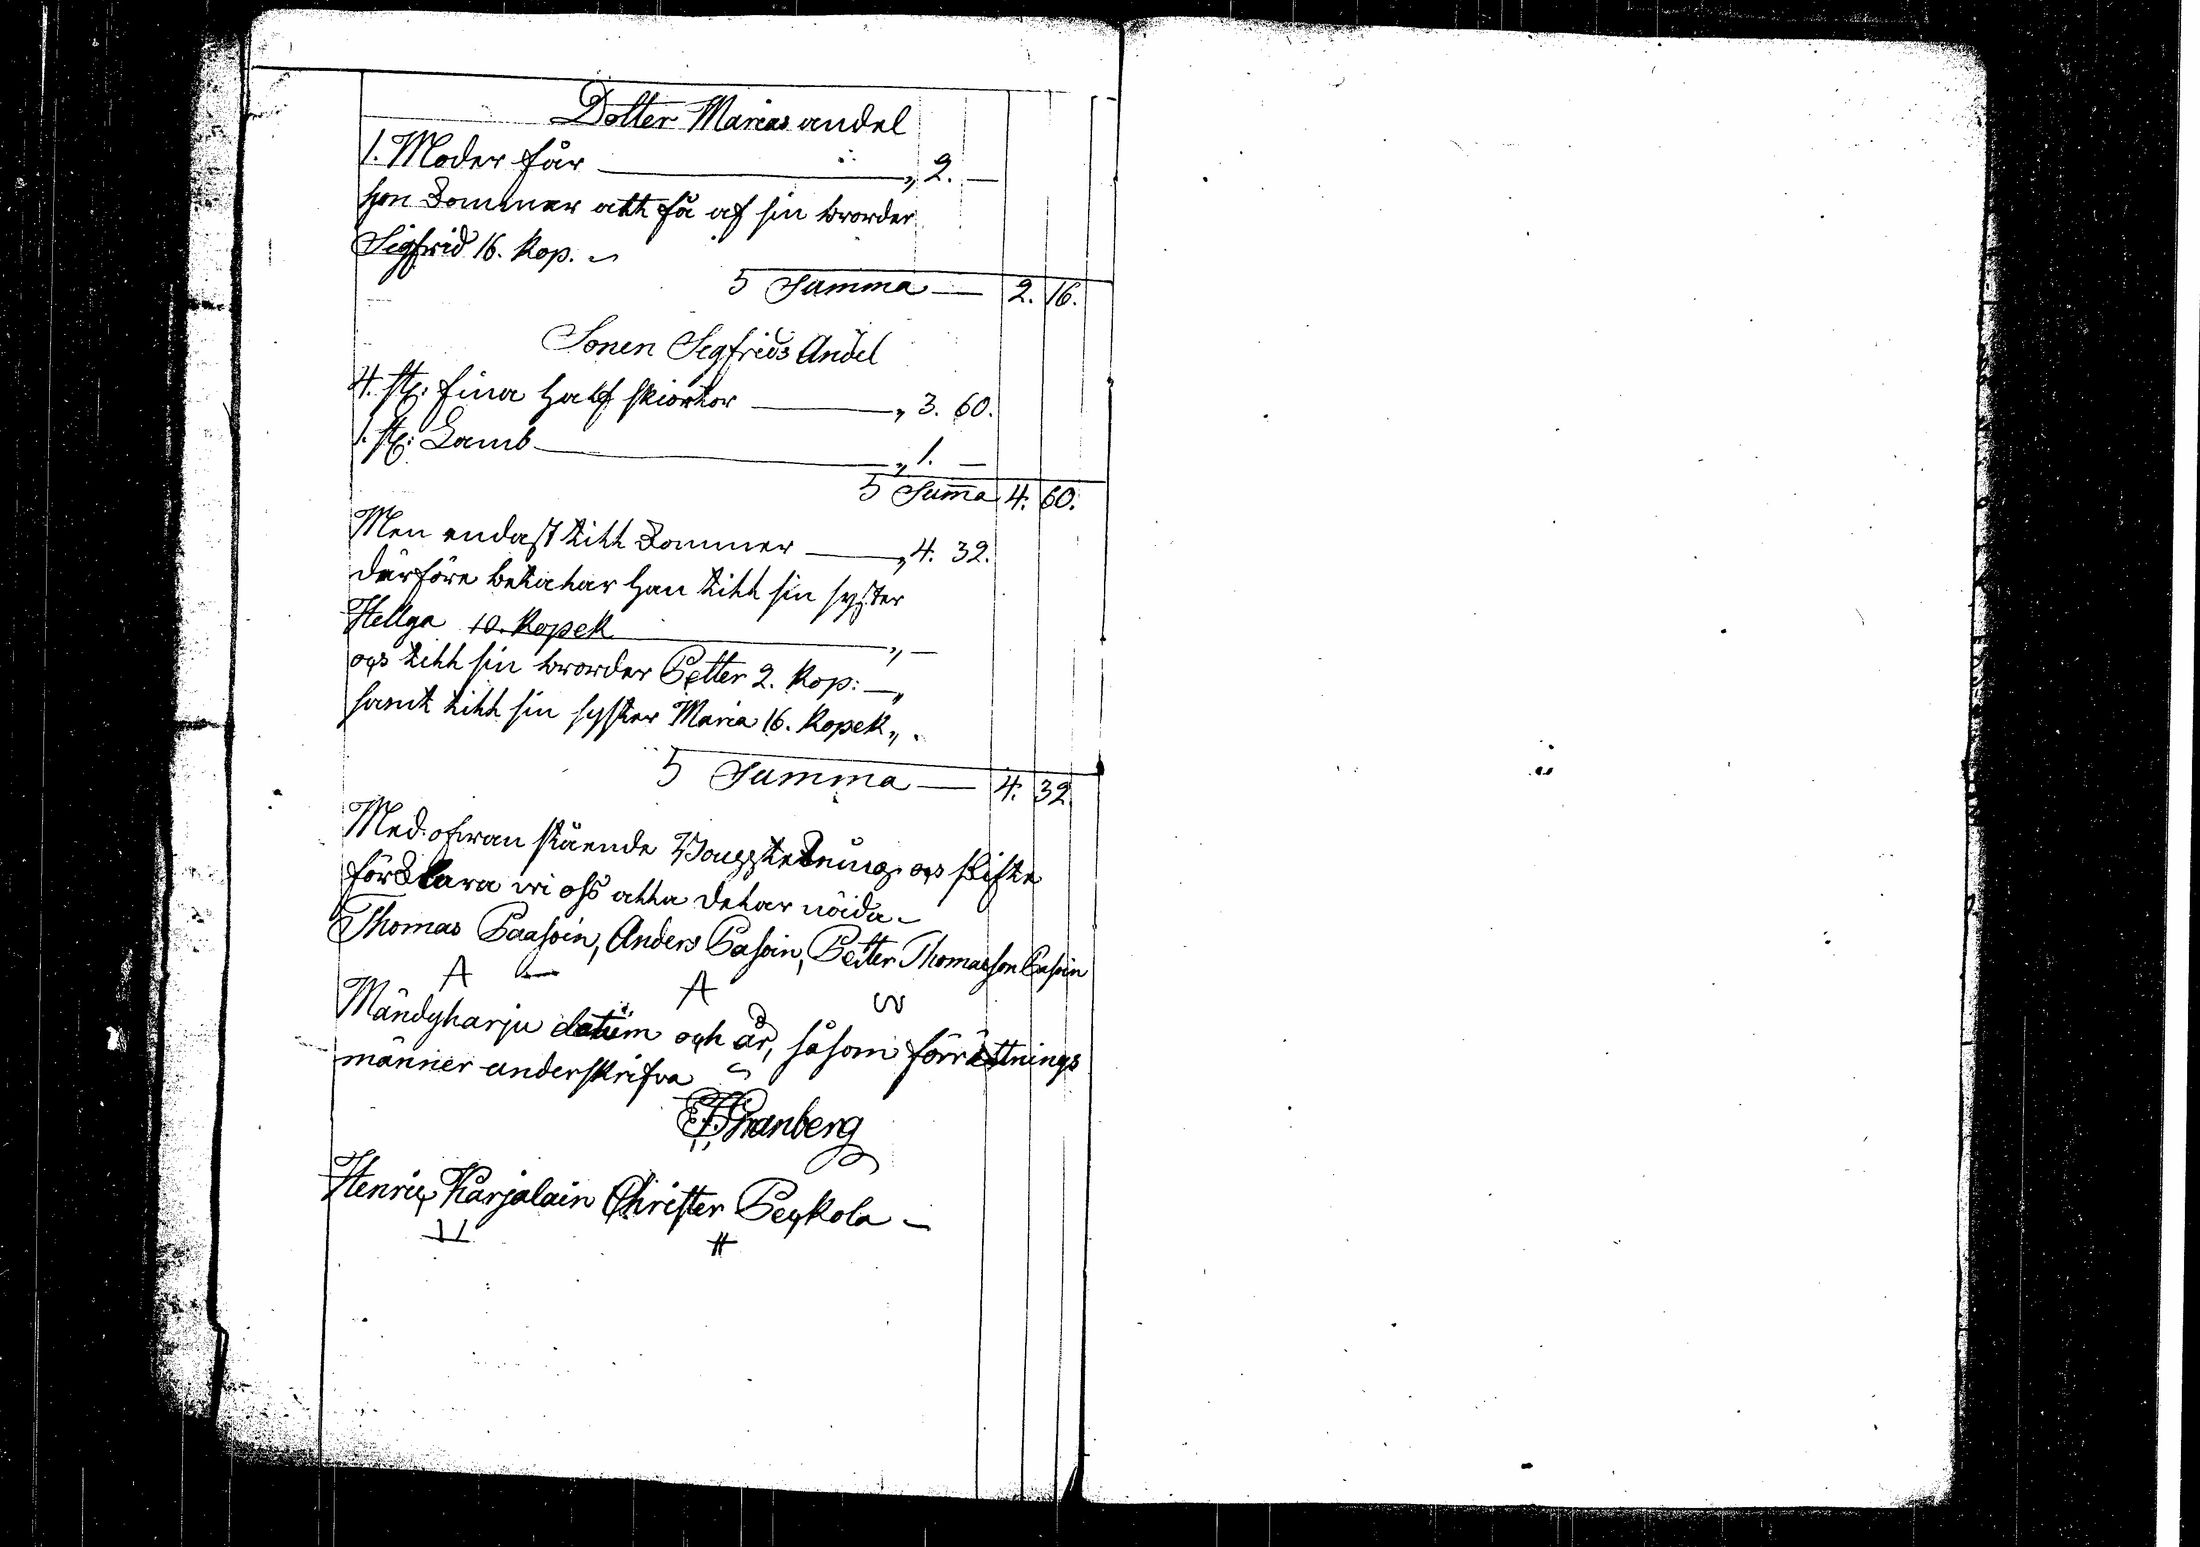 Dotter Marias andel
1. Moder får „ 2. —
hon kommer att få af sin broder
Sigfrid 16. kop. —
S Summa — 2. 16.
Sonen Sigfrids Andel
4. st: fina half skiortor „ 3. 60.
1. st: Lamb „ 1. —
S Suma 4. 60.
Men endast till kommer „ 4. 32.
därföre betalar han till sin syster
Hellga 10. kopek „ —
ocs till sin brorder Petter 2. kop: — „
samt till sin syster Maria 16. kopek „
S Summa — 4. 32.
Med ofwan stående ocs skifte
förklara wi oss alla delar nöida —
Thomas Paasoin, Anders Pasoin, Petter Thomasson Pasoin
Mändyharju datum och år, såsom förrättnings
männer underskrifva
Granberg
Henric Karjalain Christer Peckola —